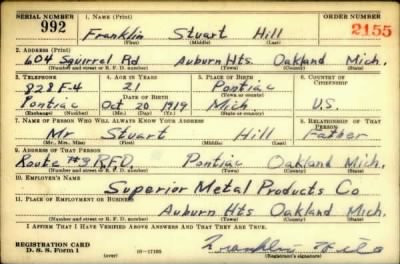 SERIAL NUMBER 1. NAME (Print) ORDER NUMBER
992 Franklin Stuart Hill 2155
(First) (Middle) (Last)
2. ADDRESS (Print)
604 Squirrel Rd Auburn Hts. Oakland Mich.
(Number and street or R. F. D. number) (Town) (County) (State)
3. TELEPHONE 4. AGE IN YEARS 5. PLACE OF BIRTH 6. COUNTRY OF CITIZENSHIP
828F-4 21 Pontiac
DATE OF BIRTH (Town or county)
Pontiac Oct 20 1919 Mich. U.S.
(Exchange) (Number) (Mo.) (Day) (Yr.) (State or country)
7. NAME OF PERSON WHO WILL ALWAYS KNOW YOUR ADDRESS 8. RELATIONSHIP OF THAT PERSON
Mr Stuart Hill Father
(Mr., Mrs., Miss) (First) (Middle) (Last)
9. ADDRESS OF THAT PERSON
Route #3 RFD. Pontiac Oakland Mich.
(Number and street or R. F. D. number) (Town) (County) (State)
10. EMPLOYER'S NAME
Superior Metal Products Co
11. PLACE OF EMPLOYMENT OR BUSINESS
Auburn Hts Oakland Mich.
(Number and street or R. F. D. number) (Town) (County) (State)
I AFFIRM THAT I HAVE VERIFIED ABOVE ANSWERS AND THAT THEY ARE TRUE.
REGISTRATION CARD Franklin Hill
D. S. S. Form 1 (over) 16-17105 (Registrant's signature)